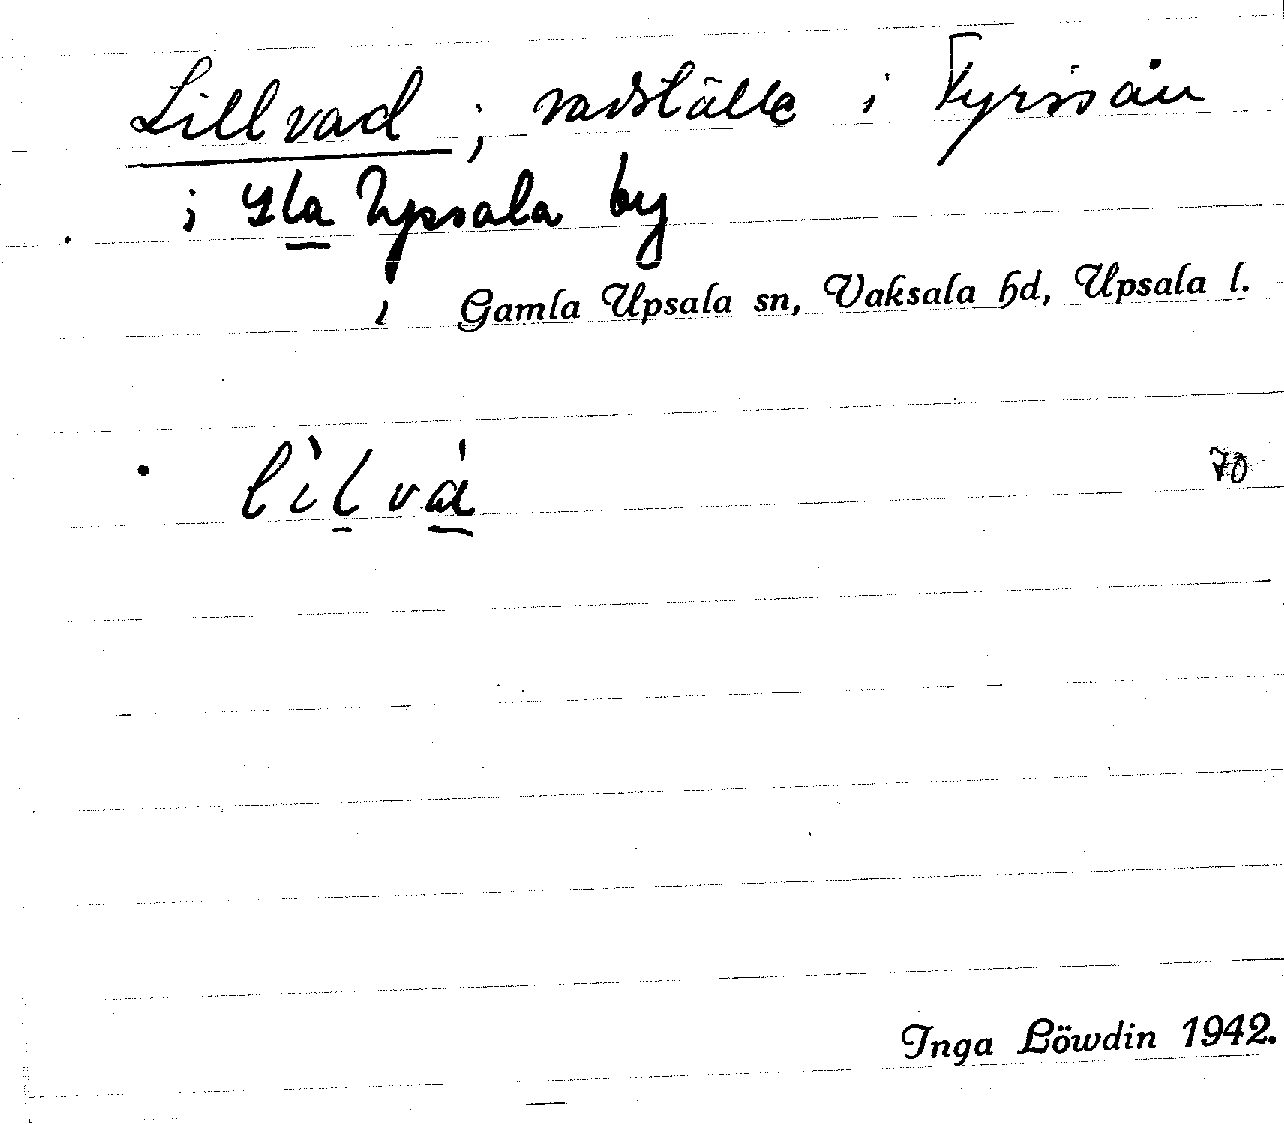 Lillvad; vadställe i Fyrisån
i Gla Upsala by
i Gamla Upsala sn, Vaksala hd, Upsala l.
lìlvá
70
Inga Löwdin 1942.